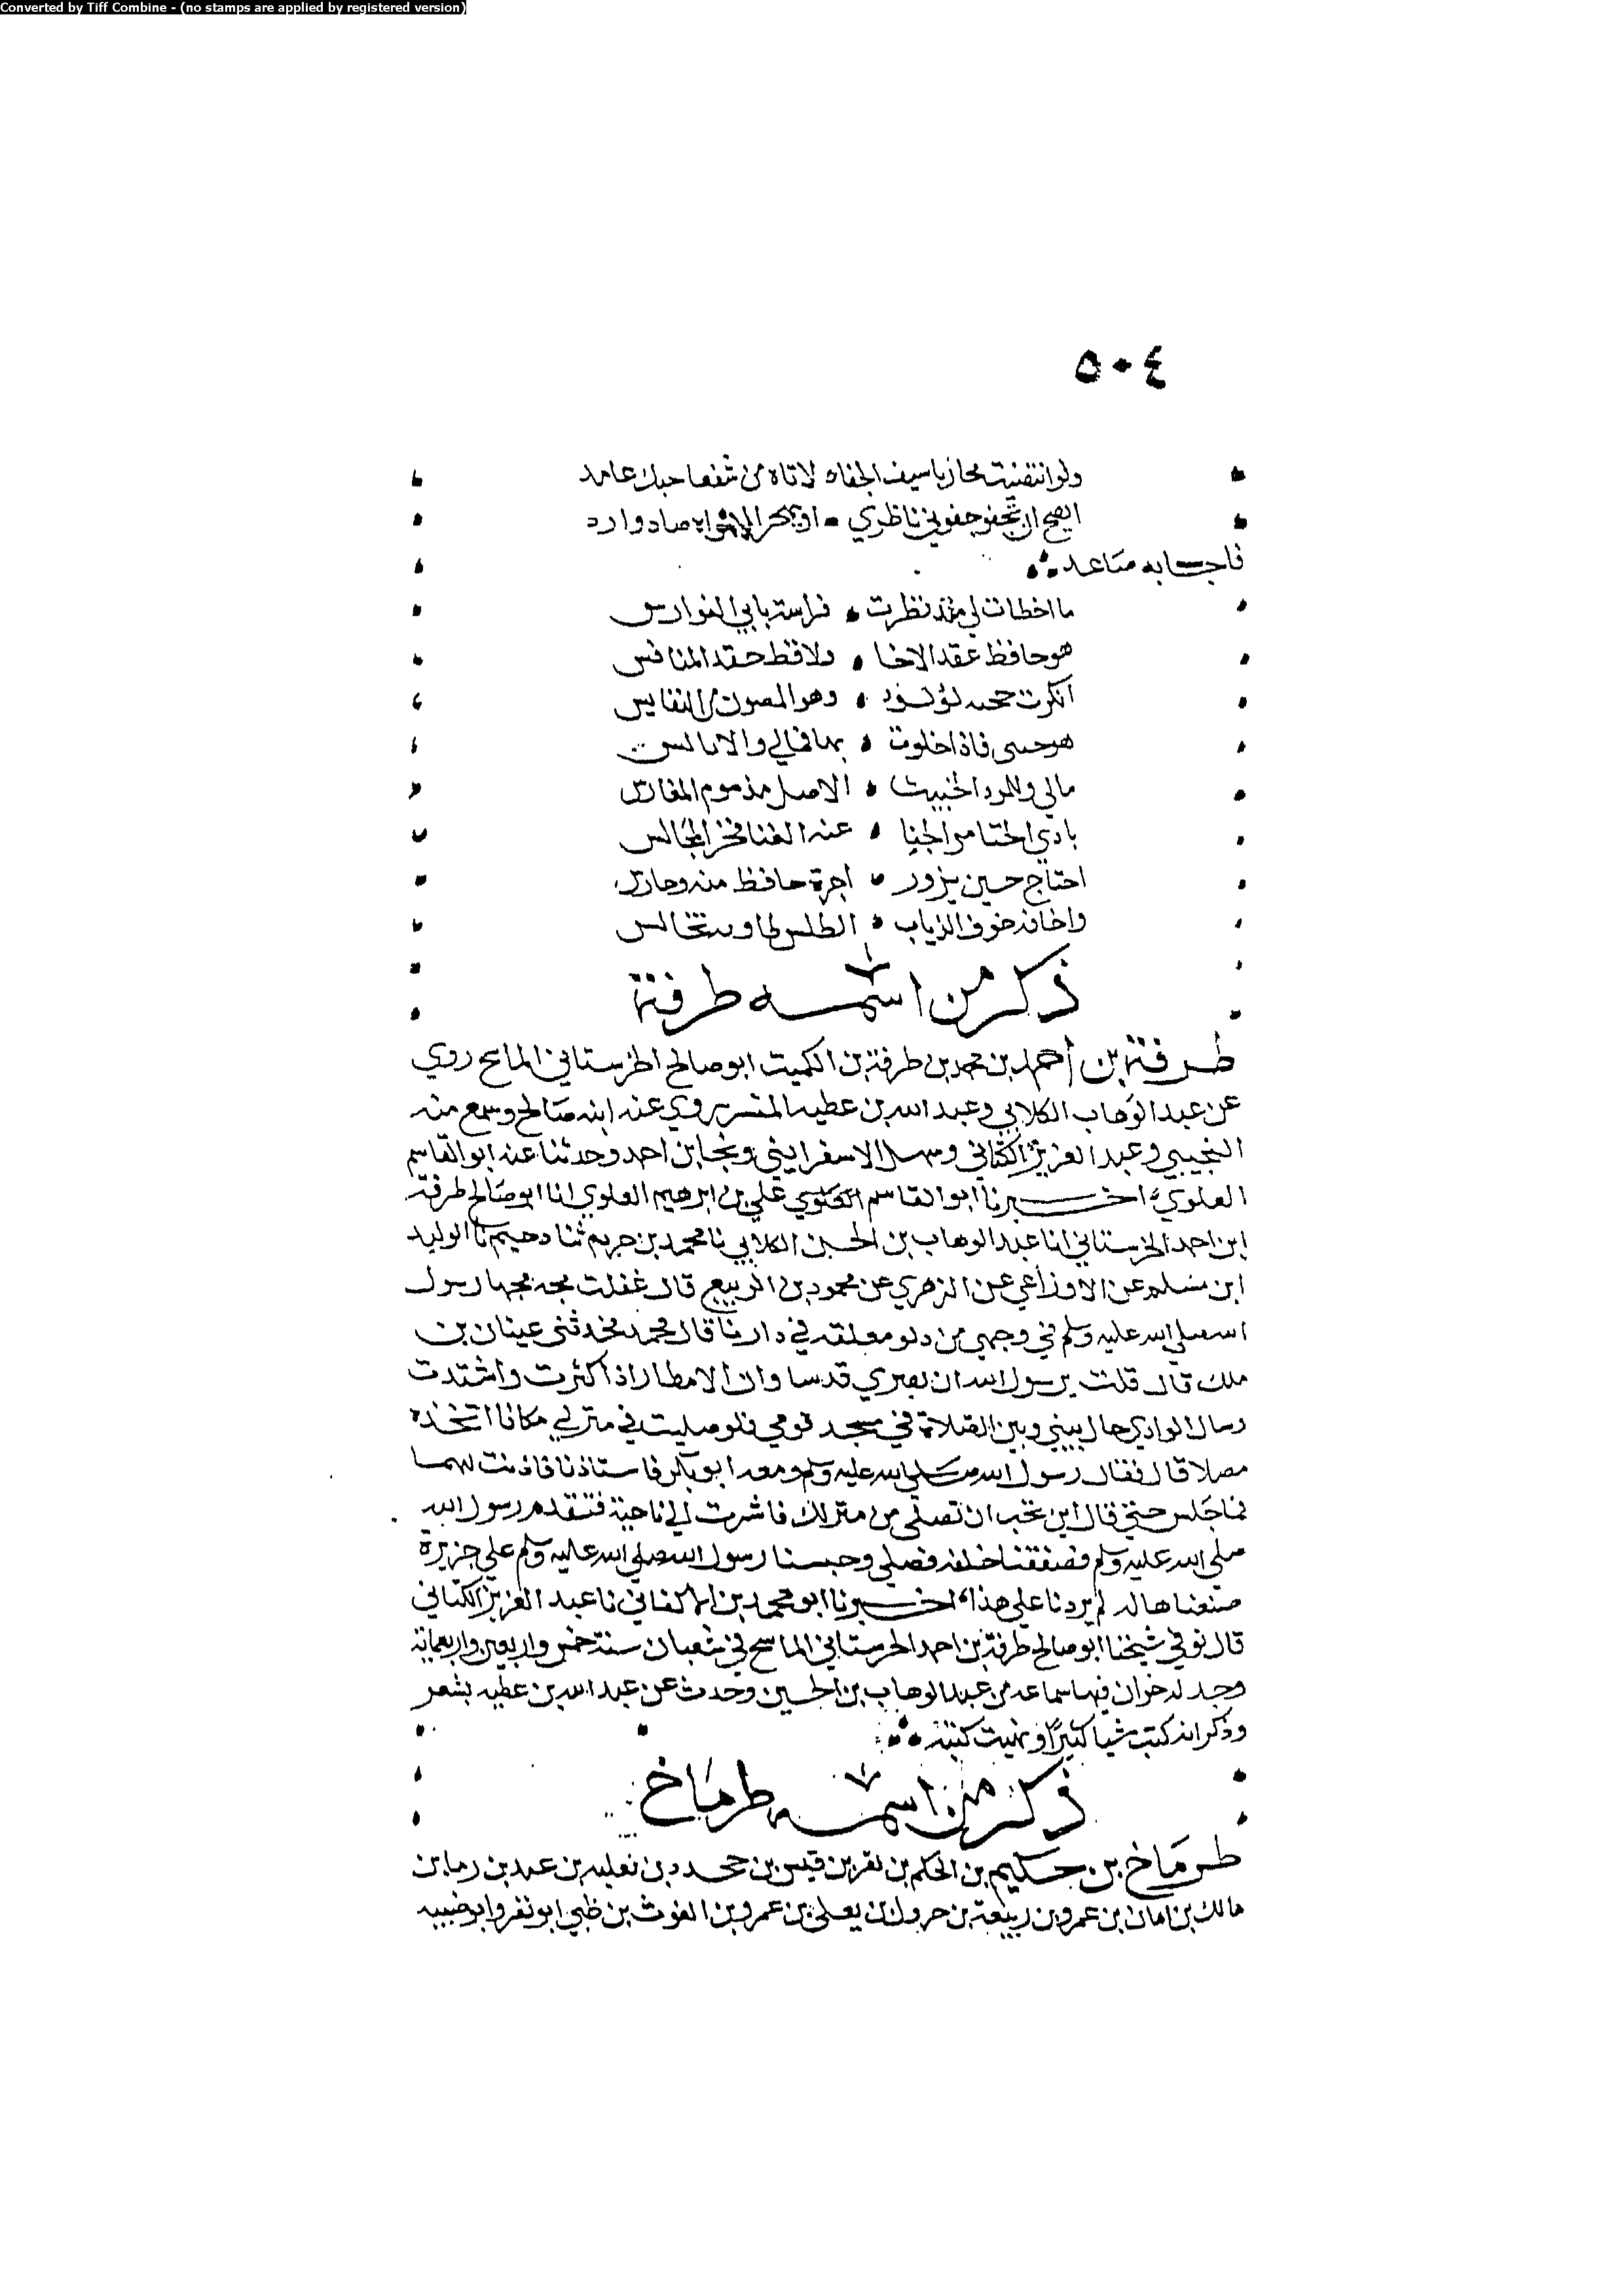 Converted by Tiff Combine - (no stamps are applied by registered version)
٥٠٤
ولو انتضيت محازيا سيف الجفاه لاتاه من شفعا حبك عامد
ايصح ان تجفو جفوني ناظري او يكر الاثواه صاد وارد
فاجابه صاعد
ما اخطات لي مذ نظرت فراسة بابي الفوارس
هو حافظ عقد الاخا ولافظ حقد المنافس
انكرت وهو المصون من النفايس
هو فاذا خلوت
مالي وللمرد الخبيث الاصل مذموم المغارس
بادي الجنا عنه الغنا فخر المجالس
احتاج حين يزور اجرة حافظ منه وحارس
واخافه خوف الذياب الطلس
ذكر من اسمه طرفة
طرفة بن احمد بن محمد بن طرفة بن الكميت ابو صالح الحرستاني الماسح روي
عن عبد الوهاب الكلابي وعبد الله بن عطيه المفسر روي عنه ابنه صالح وسمع منه
النخيبي وعبد العزيز الكتاني وسهل الاسفرايني ونجا بن احمد وحدثنا عنه ابو القاسم
العلوي اخبرنا ابو القاسم العلوي علي بن ابرهيم العلوي انا ابو صالح طرفة
ابن احمد الحرستاني انا عبد الوهاب بن الحسين الكلابي نا محمد بن خريم ثنا دحيم نا الوليد
ابن مسلم عن الاوزاعي عن الزهري عن محمود بن الربيع قال عقلت مجه مجها رسول
الله صلي الله عليه وسلم في وجهي من دلو معلقه في دارنا قال محمد فحدثني عتبان بن
ملك قال قلت يرسول الله ان بصري قد سا وان الامطار اذا كثرت واشتدت
وسال الوادي حال بيني وبين الصلاة في مسجد قومي فلو صليت في منزلي مكانا اتخذه
مصلا قال فقال رسول الله صلي الله عليه وسلم ومعه ابو بكر فاستاذنا فاذنت لهما
فما جلس حتي قال اين تحب ان نصلي من منزلك فاشرت الي ناحية فتقدم رسول الله
صلي الله عليه وسلم وصففنا خلفه فصلي وحبسنا رسول الله صلي الله عليه وسلم علي خزيرة
صنعناها له لم يردنا علي هذا اخبرنا ابو محمد بن الاكفاني نا عبد العزيز الكتاني
قال توفي شيخنا ابو صالح طرفة بن احمد الحرستاني الماسح في شعبان سنة خمس واربعين واربعمائة
وجد له جزان فيها سماعه من عبد الوهاب بن الحسين وحدث عن عبد الله بن عطيه بشعر
وذكر انه كتب شيا كثيرا ونهبت كتبه
ذكر من اسمه طرماح
طرماح بن حكيم بن الحكم بن نفر بن قيس بن جحدر بن ثعلبه بن عبد بن رضا بن
مالك بن امان بن عمرو بن ربيعة بن جرول بن يعلي بن عمرو بن الغوث بن طي ابو نفر وابو ضبيبه